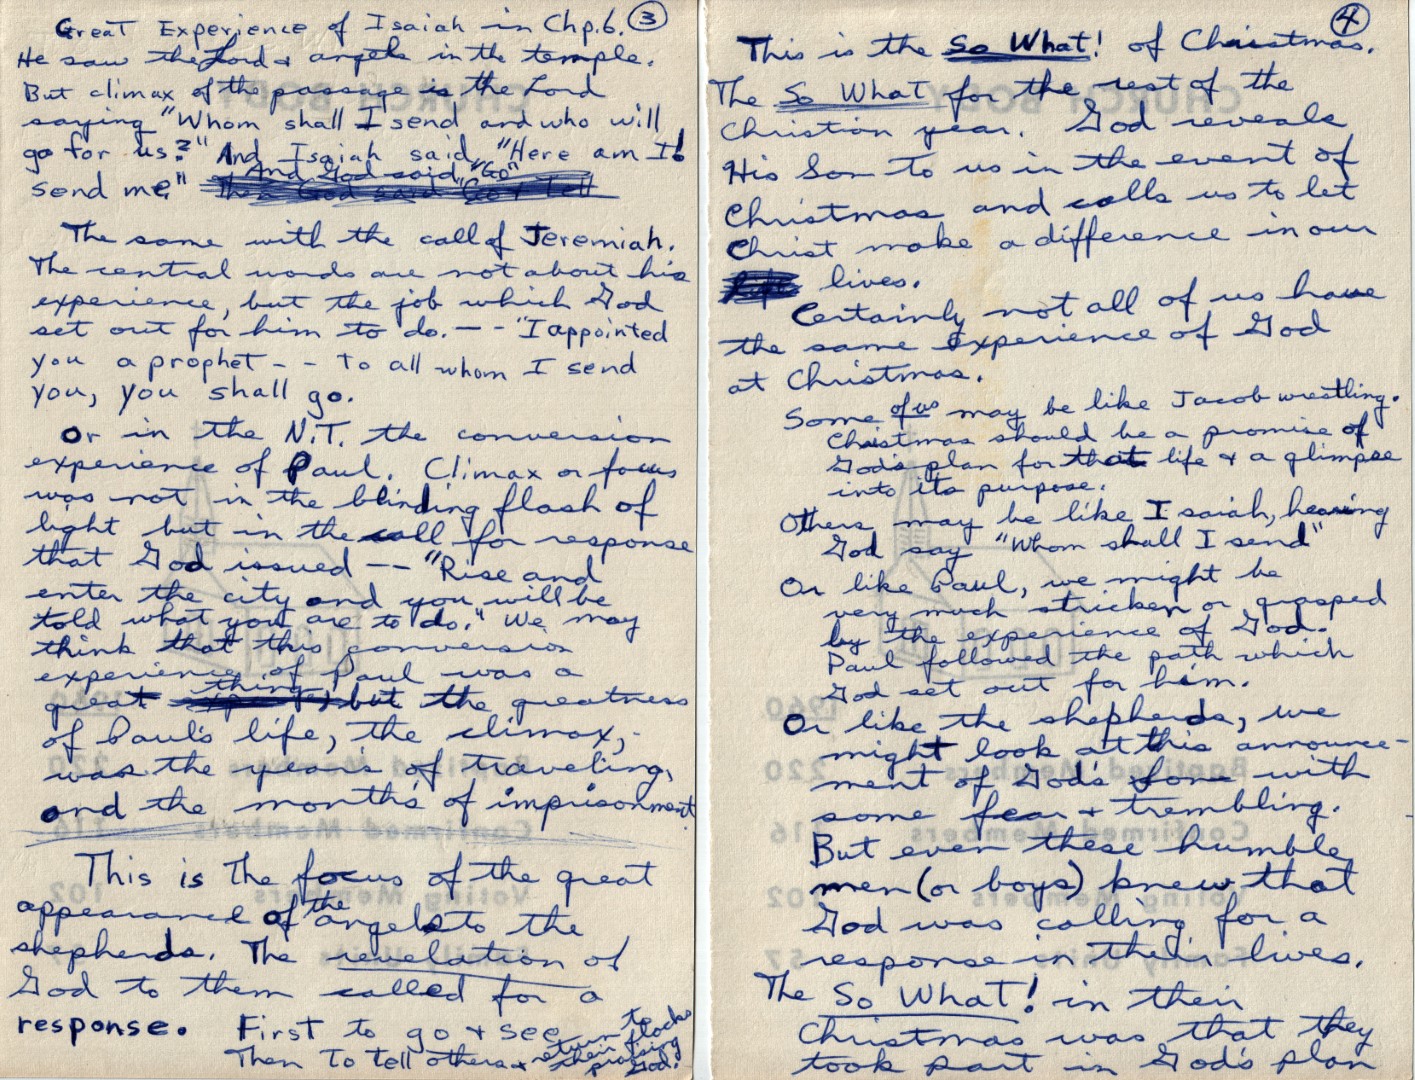 Great Experience of Isaiah in Chp. 6. 3
He saw the Lord & angels in the temple.
But climax of the passage is the Lord
saying "Whom shall I send and who will
go for us?" And Isaiah said, "Here am I!
send me." And God said, "Go"
The God said "Go & tell
The same with the call of Jeremiah.
The central words are not about his
experience, but the job which God
set out for him to do. — - "I appointed
you a prophet - - to all whom I send
you, you shall go.
Or in the N.T. the conversion
experience of Paul. Climax or focus
was not in the blinding flash of
light but in the call for response
that God issued -- "Rise and
enter the city and you will be
told what you are to do." We may
think that this conversion
experience of Paul was a
great thing, but the greatness
of Paul's life, the climax,
was the years of traveling,
and the months of imprisonment.
This is the focus of the great
appearance of the angels to the
shepherds. The revelation of
God to them called for a
response. First to go & see
Then to tell others & return to
their flocks
praising
God.
4
This is the So What! of Christmas.
The So What for the rest of the
Christian year. God reveals
His Son to us in the event of
Christmas and calls us to let
Christ make a difference in our
lives.
Certainly not all of us have
the same experience of God
at Christmas.
Some of us may be like Jacob wrestling.
Christmas should be a promise of
God's plan for that life & a glimpse
into its purpose.
Others may be like Isaiah, hearing
God say "Whom shall I send"
Or like Paul, we might be
very much stricken or grasped
by the experience of God.
Paul followed the path which
God set out for him.
Or like the shepherds, we
might look at this announce-
ment of God's Son with
some fear & trembling.
But even these humble
men (or boys) knew that
God was calling for a
response in their lives.
The So What! in their
Christmas was that they
took part in God's plan
CHURCH BODY
1960
Baptized Members 220
Confirmed Members 116
Voting Members 102
Family Units 57